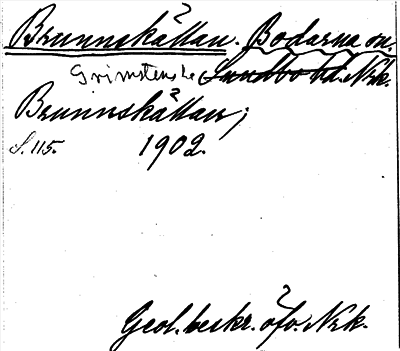 Brunnskällan. Bodarna on.
Grimstens hd Sundbo hd. Nrk.
Brunnskällan;
S. 115. 1902.
Geol. beskr. öfv. Nrk.